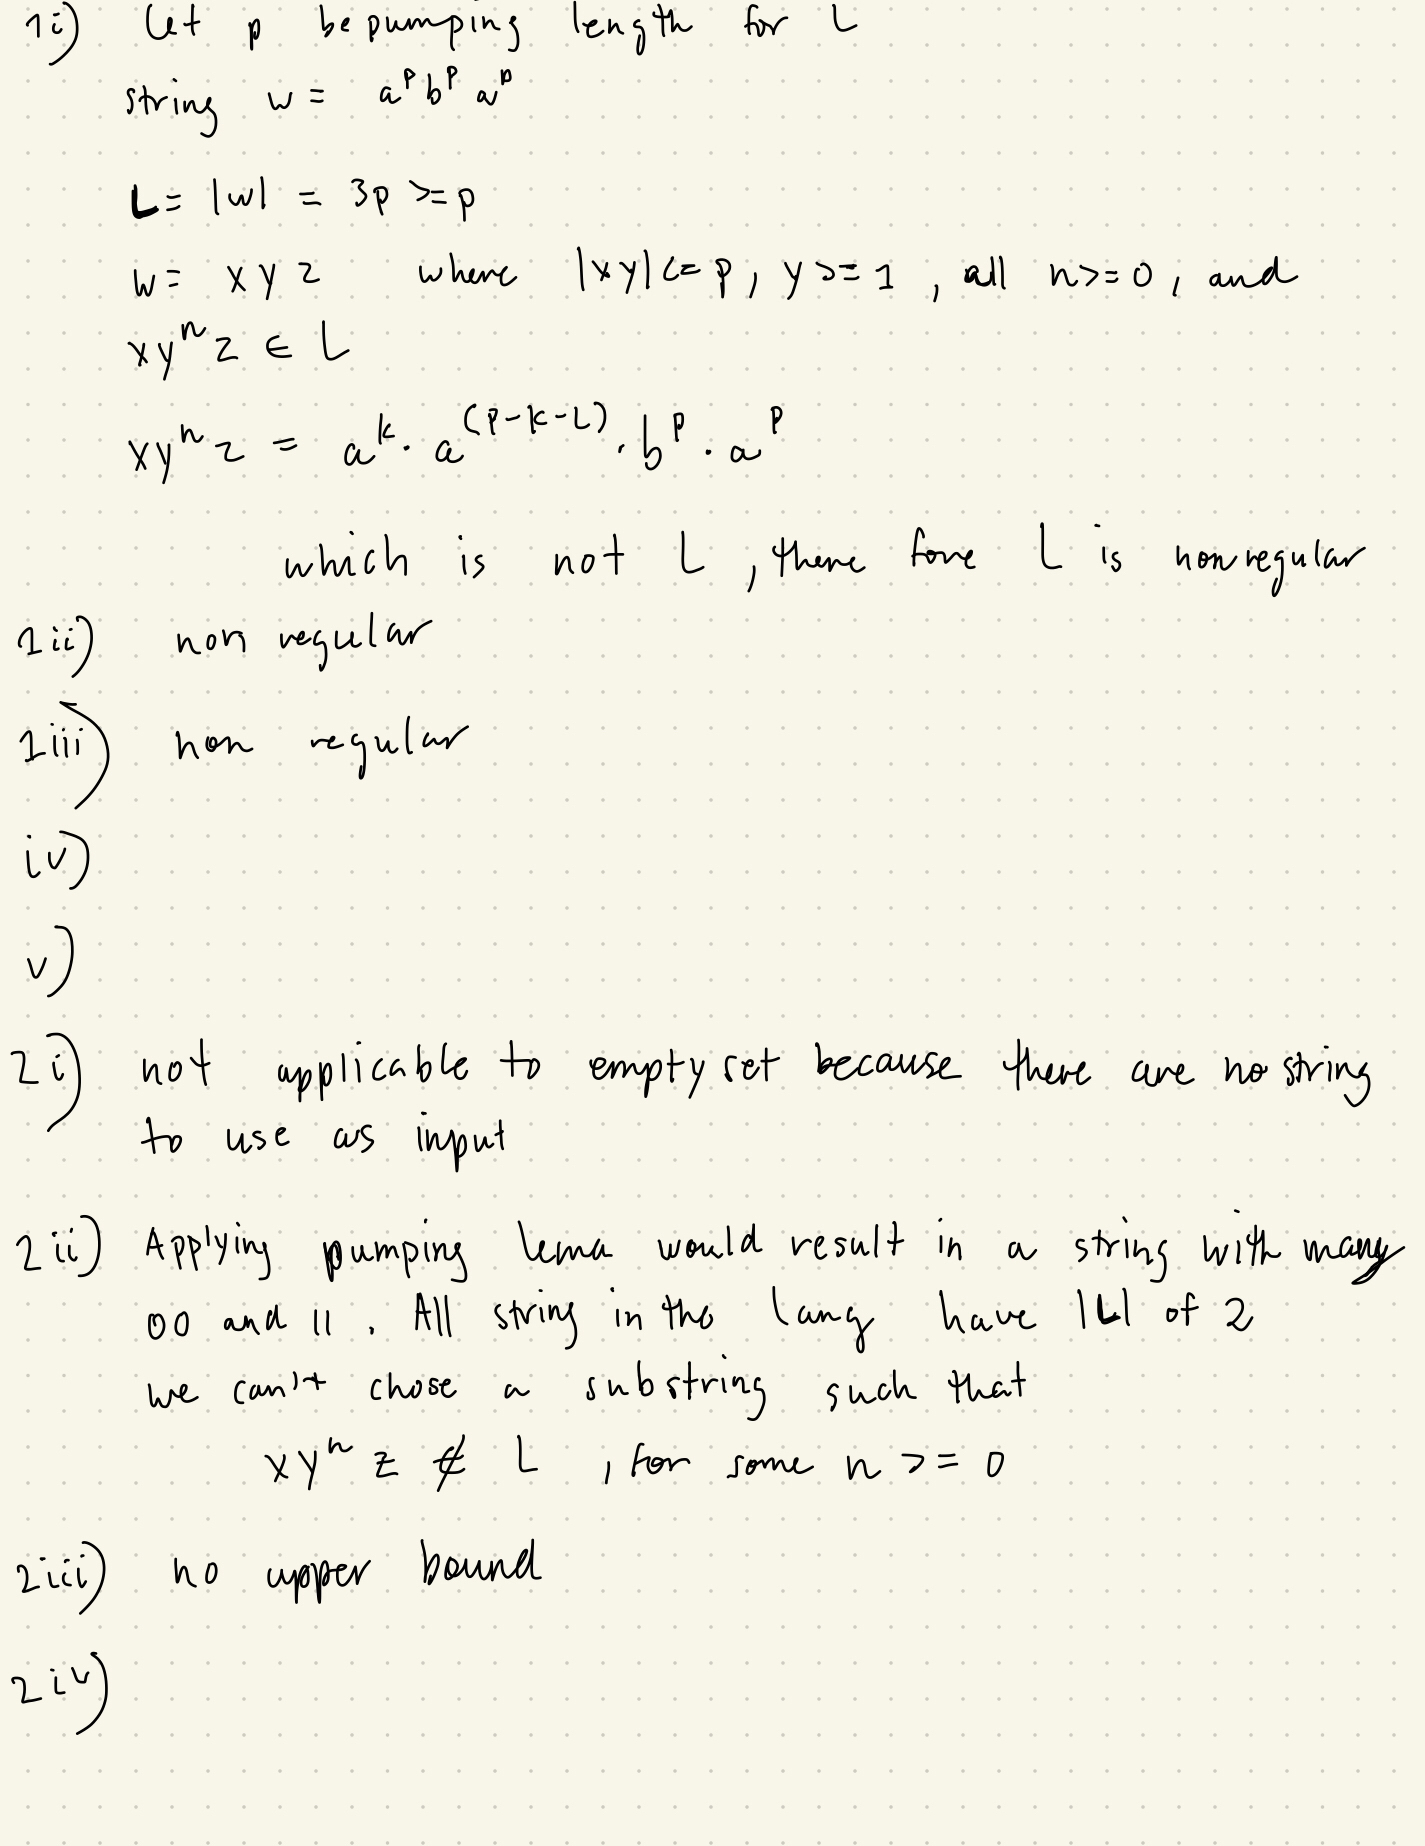 1i) Let p be pumping length for L
string w = a^p b^p a^p
L = |w| = 3p >= p
w = x y z where |xy| <= p, y >= 1, all n >= 0, and
xy^n z ∈ L
xy^n z = a^k · a^(p-k-L) · b^p · a^p
which is not L, there fore L is nonregular
1ii) non regular
1iii) non regular
iv)
v)
2i) not applicable to empty set because there are no string
to use as input
2ii) Applying pumping lema would result in a string with many
00 and 11. All string in the lang have |L| of 2
we can't chose a substring such that
xy^n z ∉ L, for some n >= 0
2iii) no upper bound
2iv)